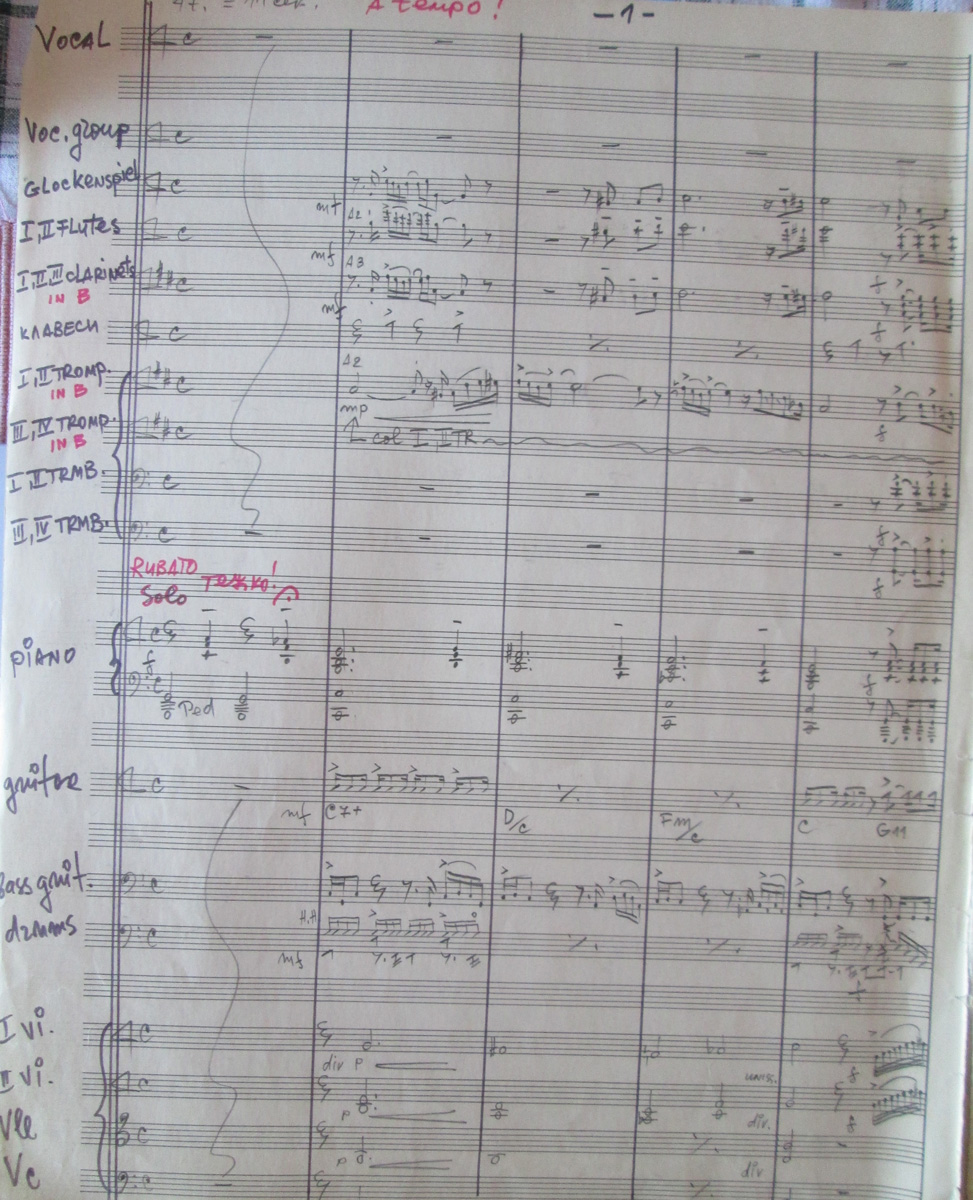 A tempo!
-1-
VOCAL
Voc. group
GLOCKENSPIEL
mf
I, II FLUTES
A2
mf
I, II, III CLARINETS
IN B
A3
mf
f
КЛАВЕСИ
f
I, II TROMP.
IN B
A2
mp
f
III, IV TROMP.
IN B
col I, II TR
I, II TRMB.
f
III, IV TRMB.
f
RUBATO
Тежко!
Solo
PIANO
f
f
Ped
guitar
mf
C7+
D/C
Fm/C
C
G11
Bass guit.
drums
H.H
mf
f
I Vi.
div P
f
II Vi.
unis.
P
div.
f
Vle
P
div
Vc